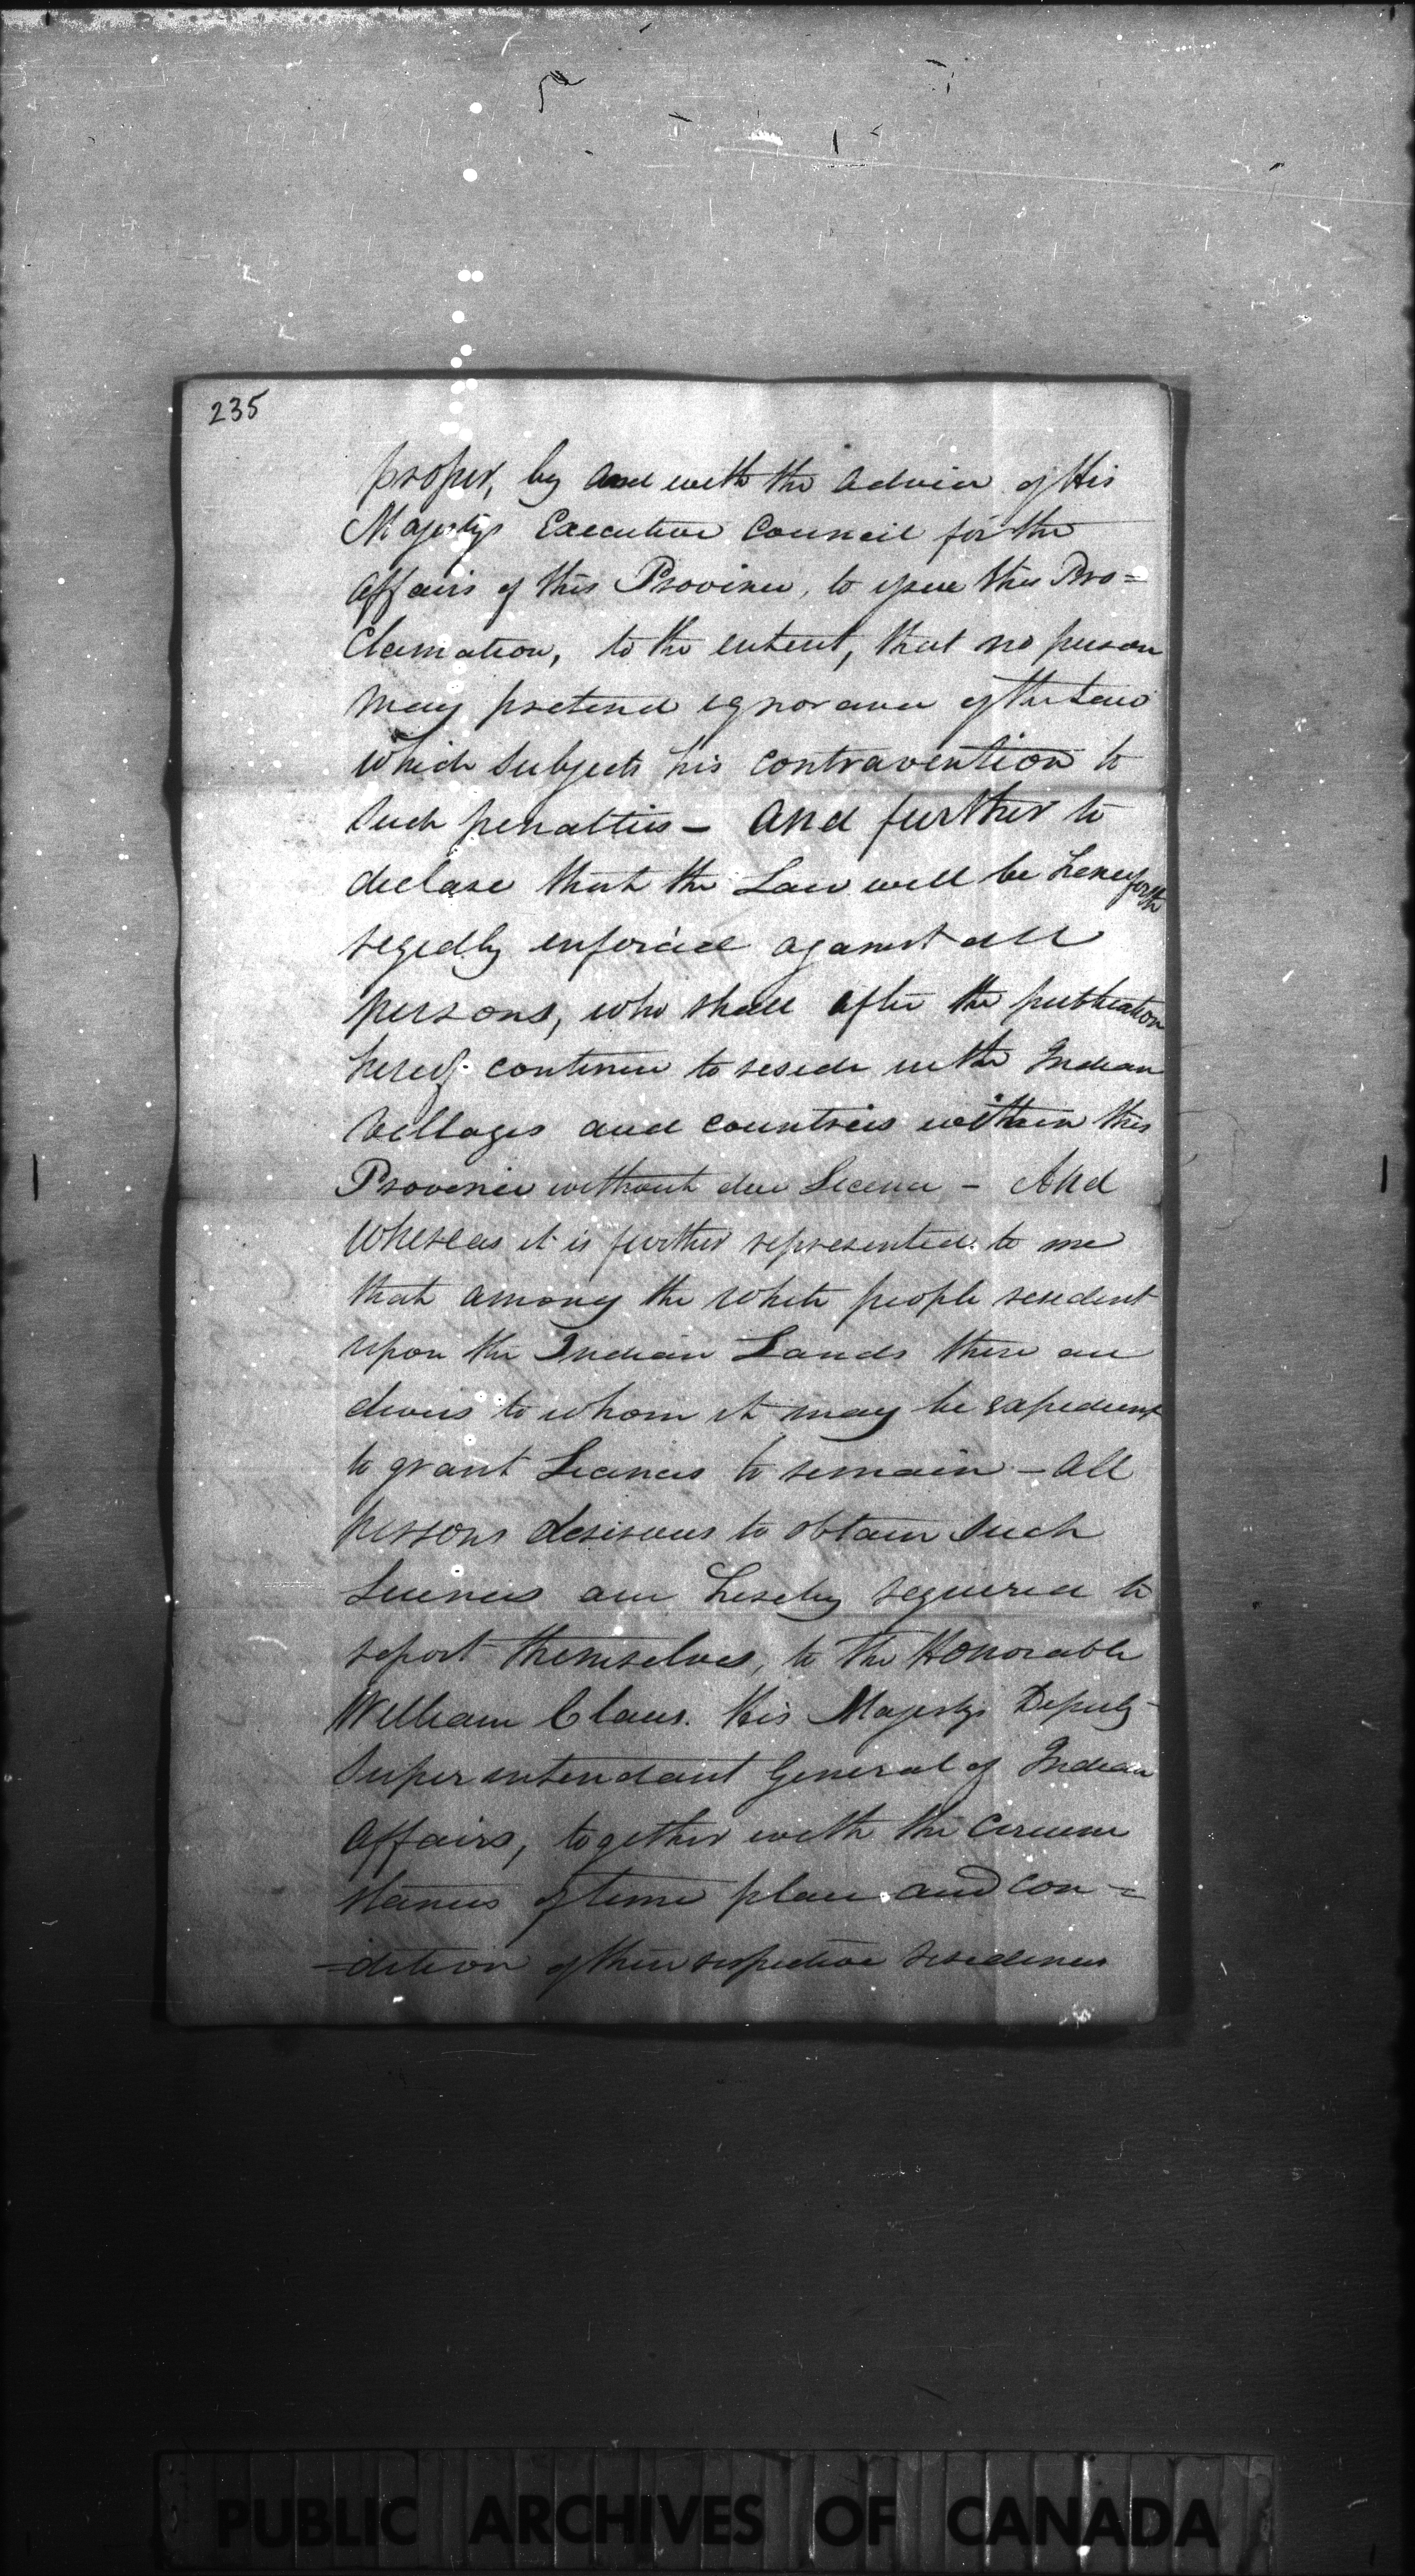 235
proper, by and with the advice of His
Majestys Executive Council for the
affairs of this Province, to issue this Pro=
Clamation, to the intent, that no person
may pretend ignorance of the Law
which subjects his contravention to
such penalties - And further to
declare that the Law will be henceforth
regedly enforced against all
persons, who shall after the publication
hereof continue to reside in the Indian
Villages and countries within this
Province without due Licence - And
Whereas it is further represented to me
that among the white people resident
upon the Indian Lands there are
divers to whom it may be expedient
to grant Licences to remain - all
persons desirous to obtain such
Licences are hereby required to
report themselves, to the Honorable
William Claus. His Majestys Deputy
Superintendant General of Indian
Affairs, together with the Circum
stances of time place and con=
=dition of their respective residences
PUBLIC ARCHIVES OF CANADA